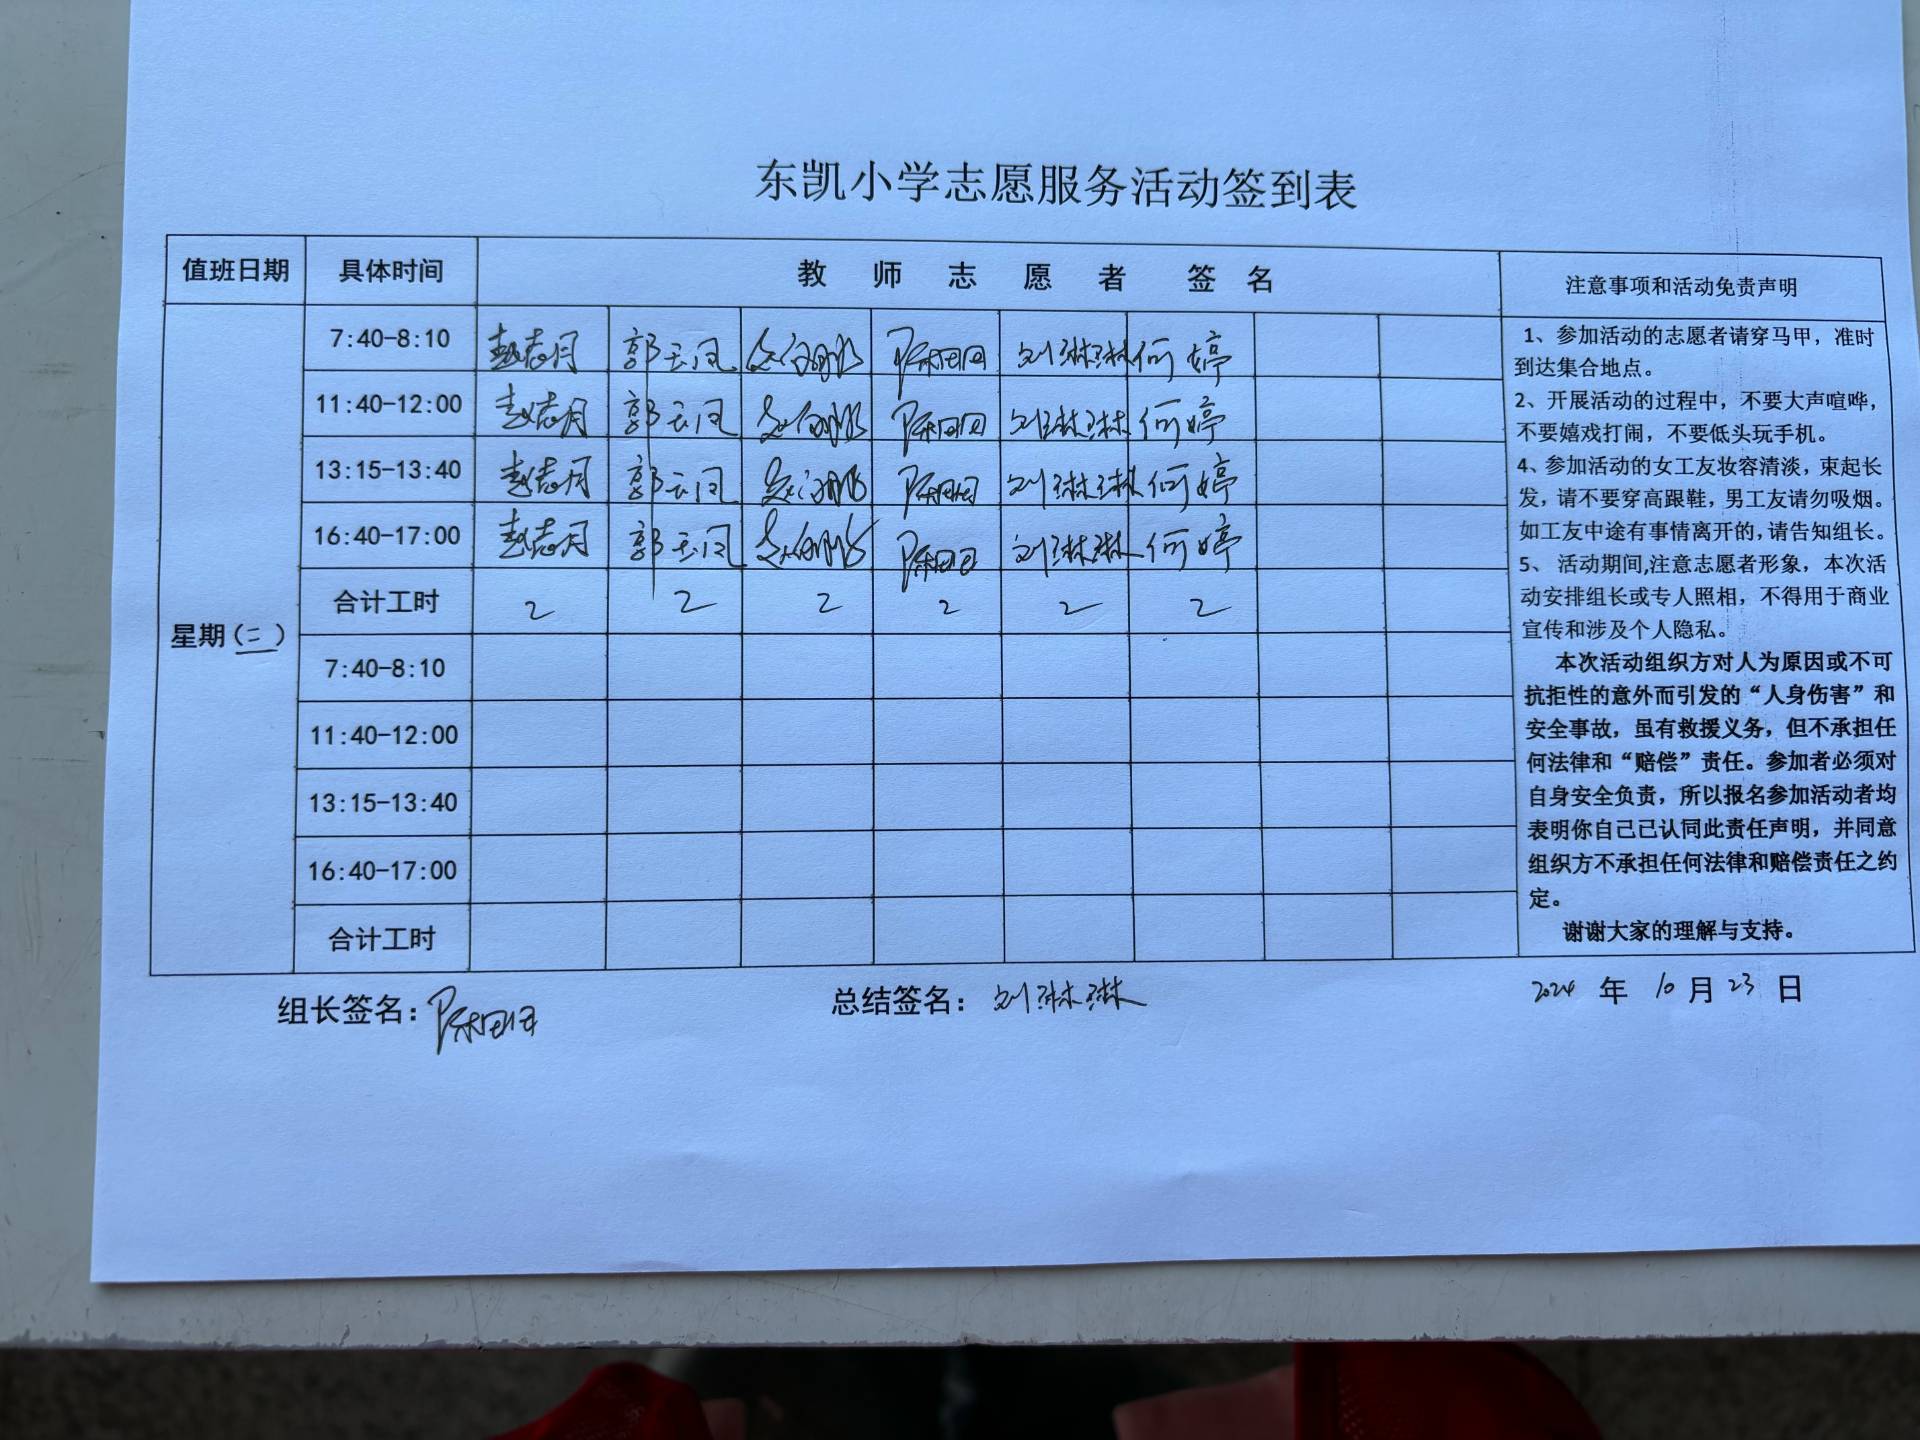 东凯小学志愿服务活动签到表
值班日期 具体时间 教师志愿者签名 注意事项和活动免责声明
7:40-8:10 赵志月 郭云凤 陈田田 刘琳琳 何婷
11:40-12:00 赵志月 郭云凤 陈田田 刘琳琳 何婷
13:15-13:40 赵志月 郭云凤 陈田田 刘琳琳 何婷
16:40-17:00 赵志月 郭云凤 陈田田 刘琳琳 何婷
合计工时 2 2 2 2 2 2
星期(三)
7:40-8:10
11:40-12:00
13:15-13:40
16:40-17:00
合计工时
1、参加活动的志愿者请穿马甲，准时
到达集合地点。
2、开展活动的过程中，不要大声喧哗，
不要嬉戏打闹，不要低头玩手机。
4、参加活动的女工友妆容清淡，束起长
发，请不要穿高跟鞋，男工友请勿吸烟。
如工友中途有事情离开的，请告知组长。
5、 活动期间,注意志愿者形象，本次活
动安排组长或专人照相，不得用于商业
宣传和涉及个人隐私。
本次活动组织方对人为原因或不可
抗拒性的意外而引发的“人身伤害”和
安全事故，虽有救援义务，但不承担任
何法律和“赔偿”责任。参加者必须对
自身安全负责，所以报名参加活动者均
表明你自己已认同此责任声明，并同意
组织方不承担任何法律和赔偿责任之约
定。
谢谢大家的理解与支持。
组长签名：陈田田 总结签名：刘琳琳 2024 年 10 月 23 日